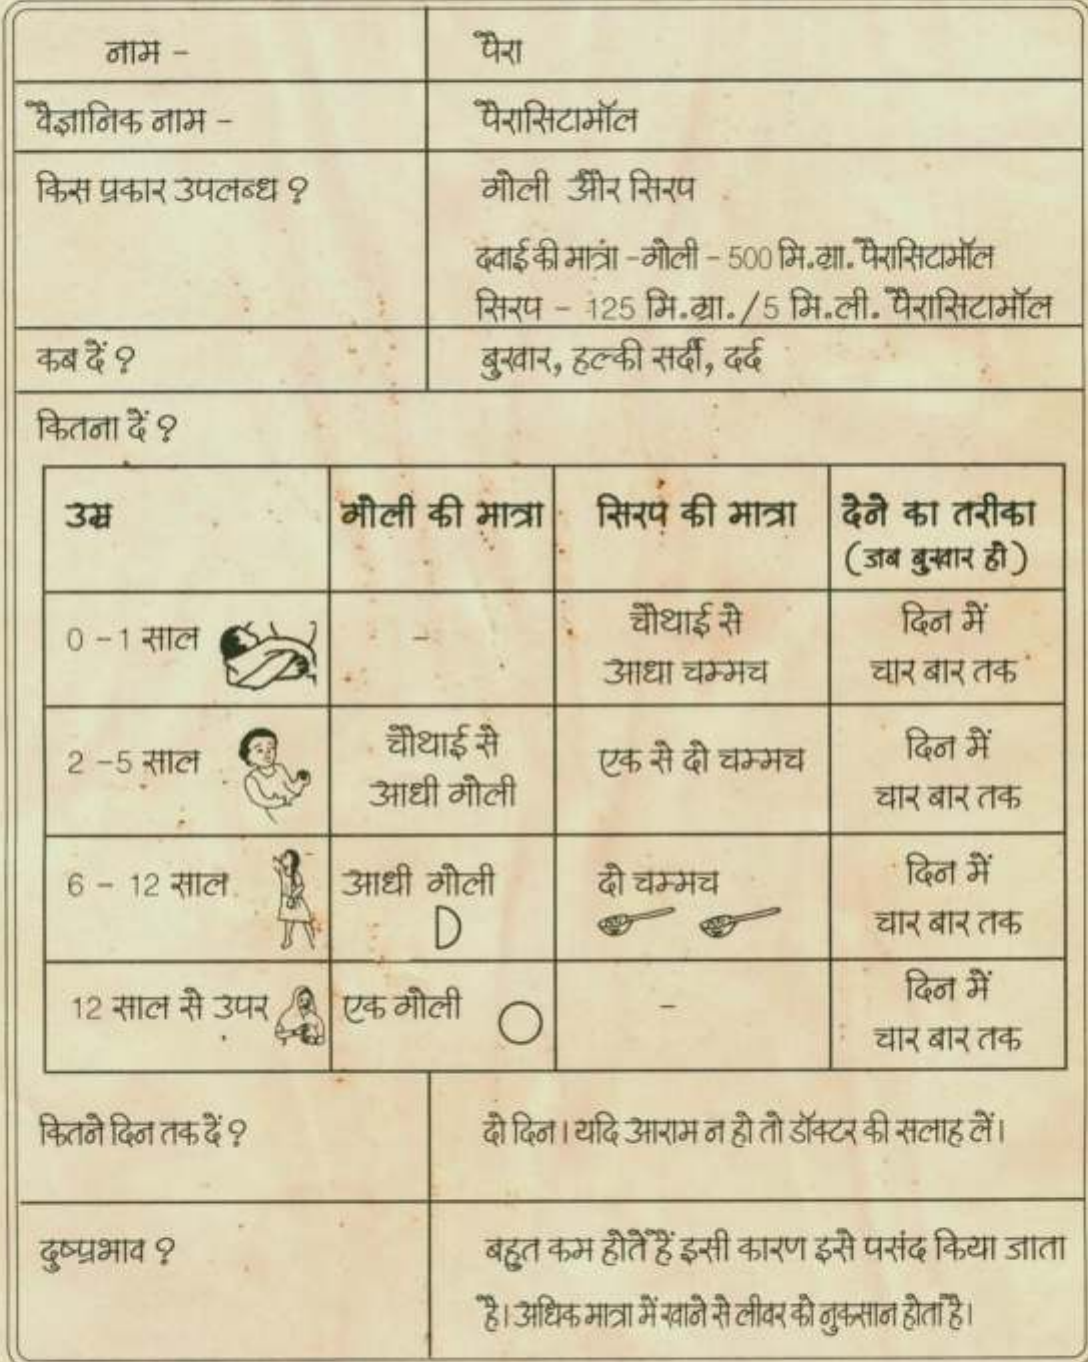 नाम -
पैरा
वैज्ञानिक नाम -
पैरासिटामॉल
किस प्रकार उपलब्ध ?
गोली और सिरप
दवाई की मात्रां - गोली - 500 मि.ग्रा. पैरासिटामॉल
सिरप - 125 मि.ग्रा. / 5 मि.ली. पैरासिटामॉल
कब दें ?
बुखार, हल्की सर्दी, दर्द
कितना दें ?
उम्र
गोली की मात्रा
सिरप की मात्रा
देने का तरीका
(जब बुखार हो)
0 - 1 साल
-
चौथाई से
आधा चम्मच
दिन में
चार बार तक
2 - 5 साल
चौथाई से
आधी गोली
एक से दो चम्मच
दिन में
चार बार तक
6 - 12 साल
आधी गोली
दो चम्मच
दिन में
चार बार तक
12 साल से उपर
एक गोली
-
दिन में
चार बार तक
कितने दिन तक दें ?
दो दिन। यदि आराम न हो तो डॉक्टर की सलाह लें।
दुष्प्रभाव ?
बहुत कम होते हैं इसी कारण इसे पसंद किया जाता
है। अधिक मात्रा में खाने से लीवर को नुकसान होता है।